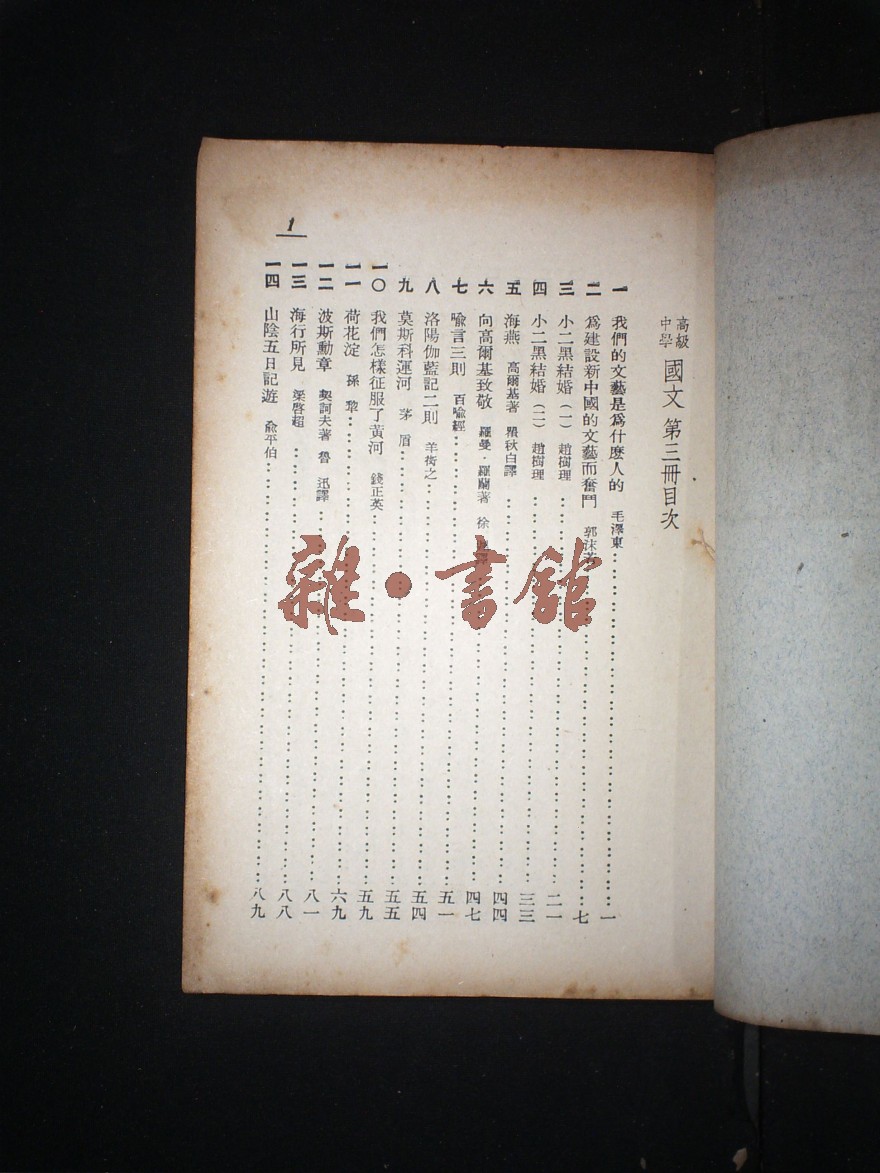 高級中學 國文 第三冊目次
一 我們的文藝是爲什麽人的 毛澤東 一
二 爲建設新中國的文藝而奮鬥 郭沫 七
三 小二黑結婚（一） 趙樹理 二一
四 小二黑結婚（二） 趙樹理 三三
五 海燕 高爾基著 瞿秋白譯 四四
六 向高爾基致敬 羅曼·羅蘭著 徐 四七
七 喩言三則 百喩經 五一
八 洛陽伽藍記二則 羊衒之 五四
九 莫斯科運河 茅盾 五五
一〇 我們怎樣征服了黃河 錢正英 五九
一一 荷花淀 孫犂 六九
一二 波斯勳章 契訶夫著 魯迅譯 八一
一三 海行所見 梁啓超 八八
一四 山陰五日記遊 兪平伯 八九
1
雜·書館